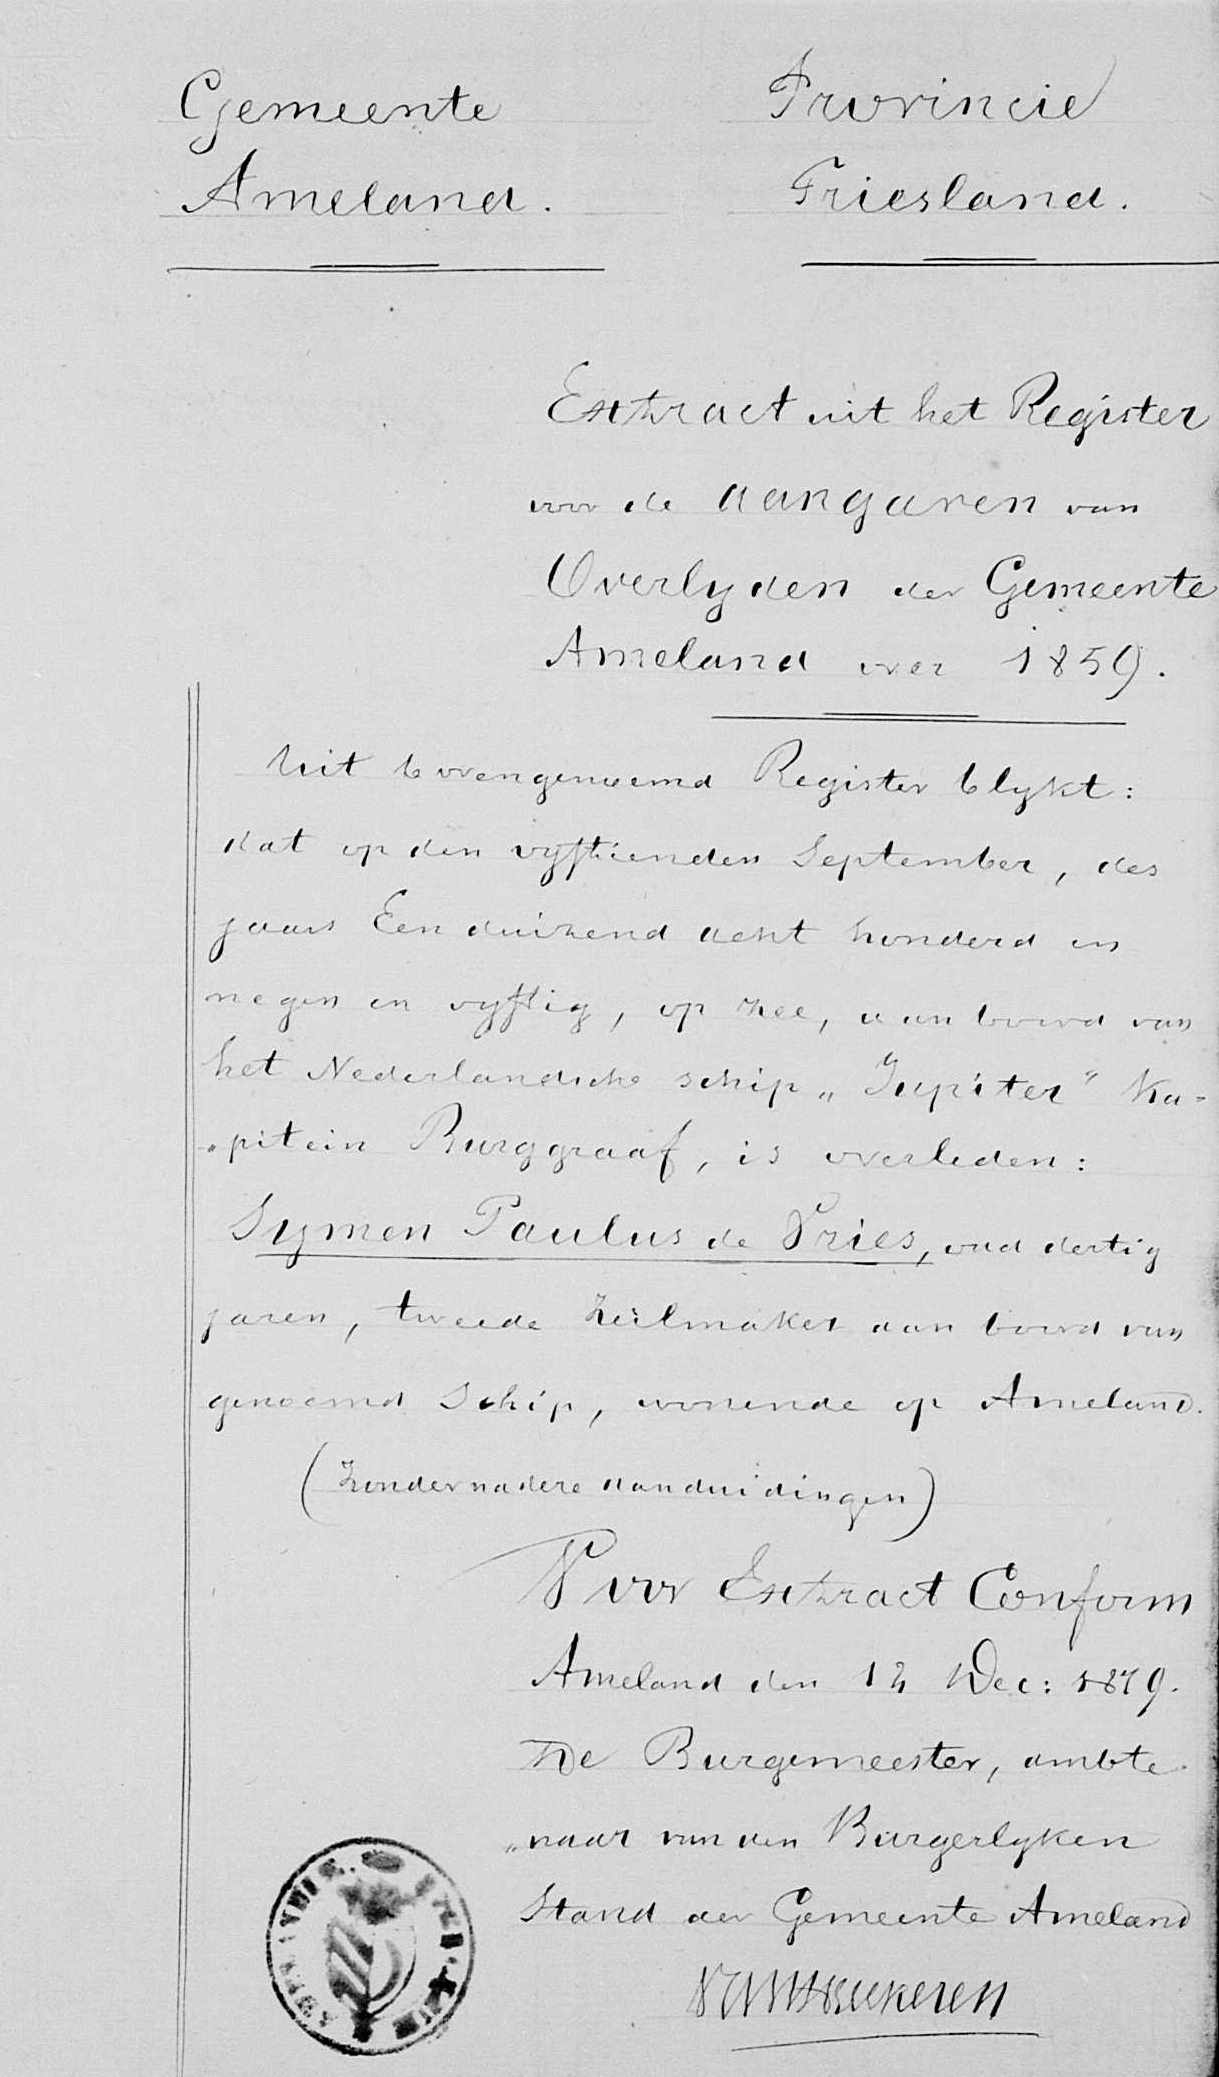 Gemeente Provincie
Ameland. Friesland.
Extract uit het Register
voor de aangaven van
Overlyden der Gemeente
Ameland over 1859.
Uit bovengenoemd Register blykt:
dat op den vyftienden September, des
jaars Een duizend acht honderd en
negen en vyftig, op zee, aan boord van
het Nederlandsche schip „Jupiter" Ka-
„pitein Burggraaf, is overleden:
Symen Paulus de Vries, oud dertig
jaren, tweede zeilmaker aan boord van
genoemd Schip, wonende op Ameland.
(Zonder nadere aanduidingen)
Voor Extract Conform
Ameland den 12 Dec: 1879.
De Burgemeester, ambte-
„naar van den Burgerlyken
Stand der Gemeente Ameland